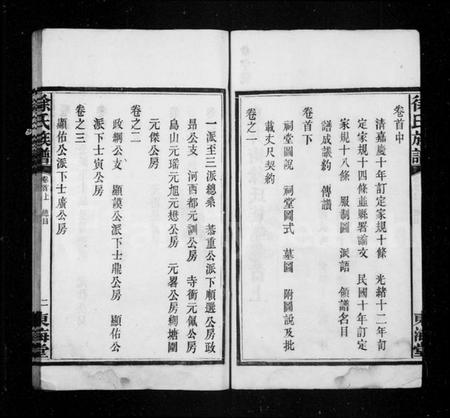 徐氏族譜
卷首中
清嘉慶十年訂定家規十條 光緒十二年訂
定家規十四條並縣署諭文 民國十年訂定
家規十八條 服制圖 派語 領譜名目
譜成議約 傳讚
卷首下
祠堂圖說 祠堂圖式 墓圖 附圖說及批
載丈尺契約
卷之一
東海堂
一派至三派總系 基重公派下順選公房政
昂公支 河西都元調公房 寺衝元佩公房
烏山元瑤元旭元懋公房 元署公房綢塘園
元傑公房
卷之二
政綱公支 顯謨公派下士龍公房 顯佑公
派下士寅公房
卷之三
顯佑公派下士廣公房
徐氏族譜
卷首上 總目
二
東海堂